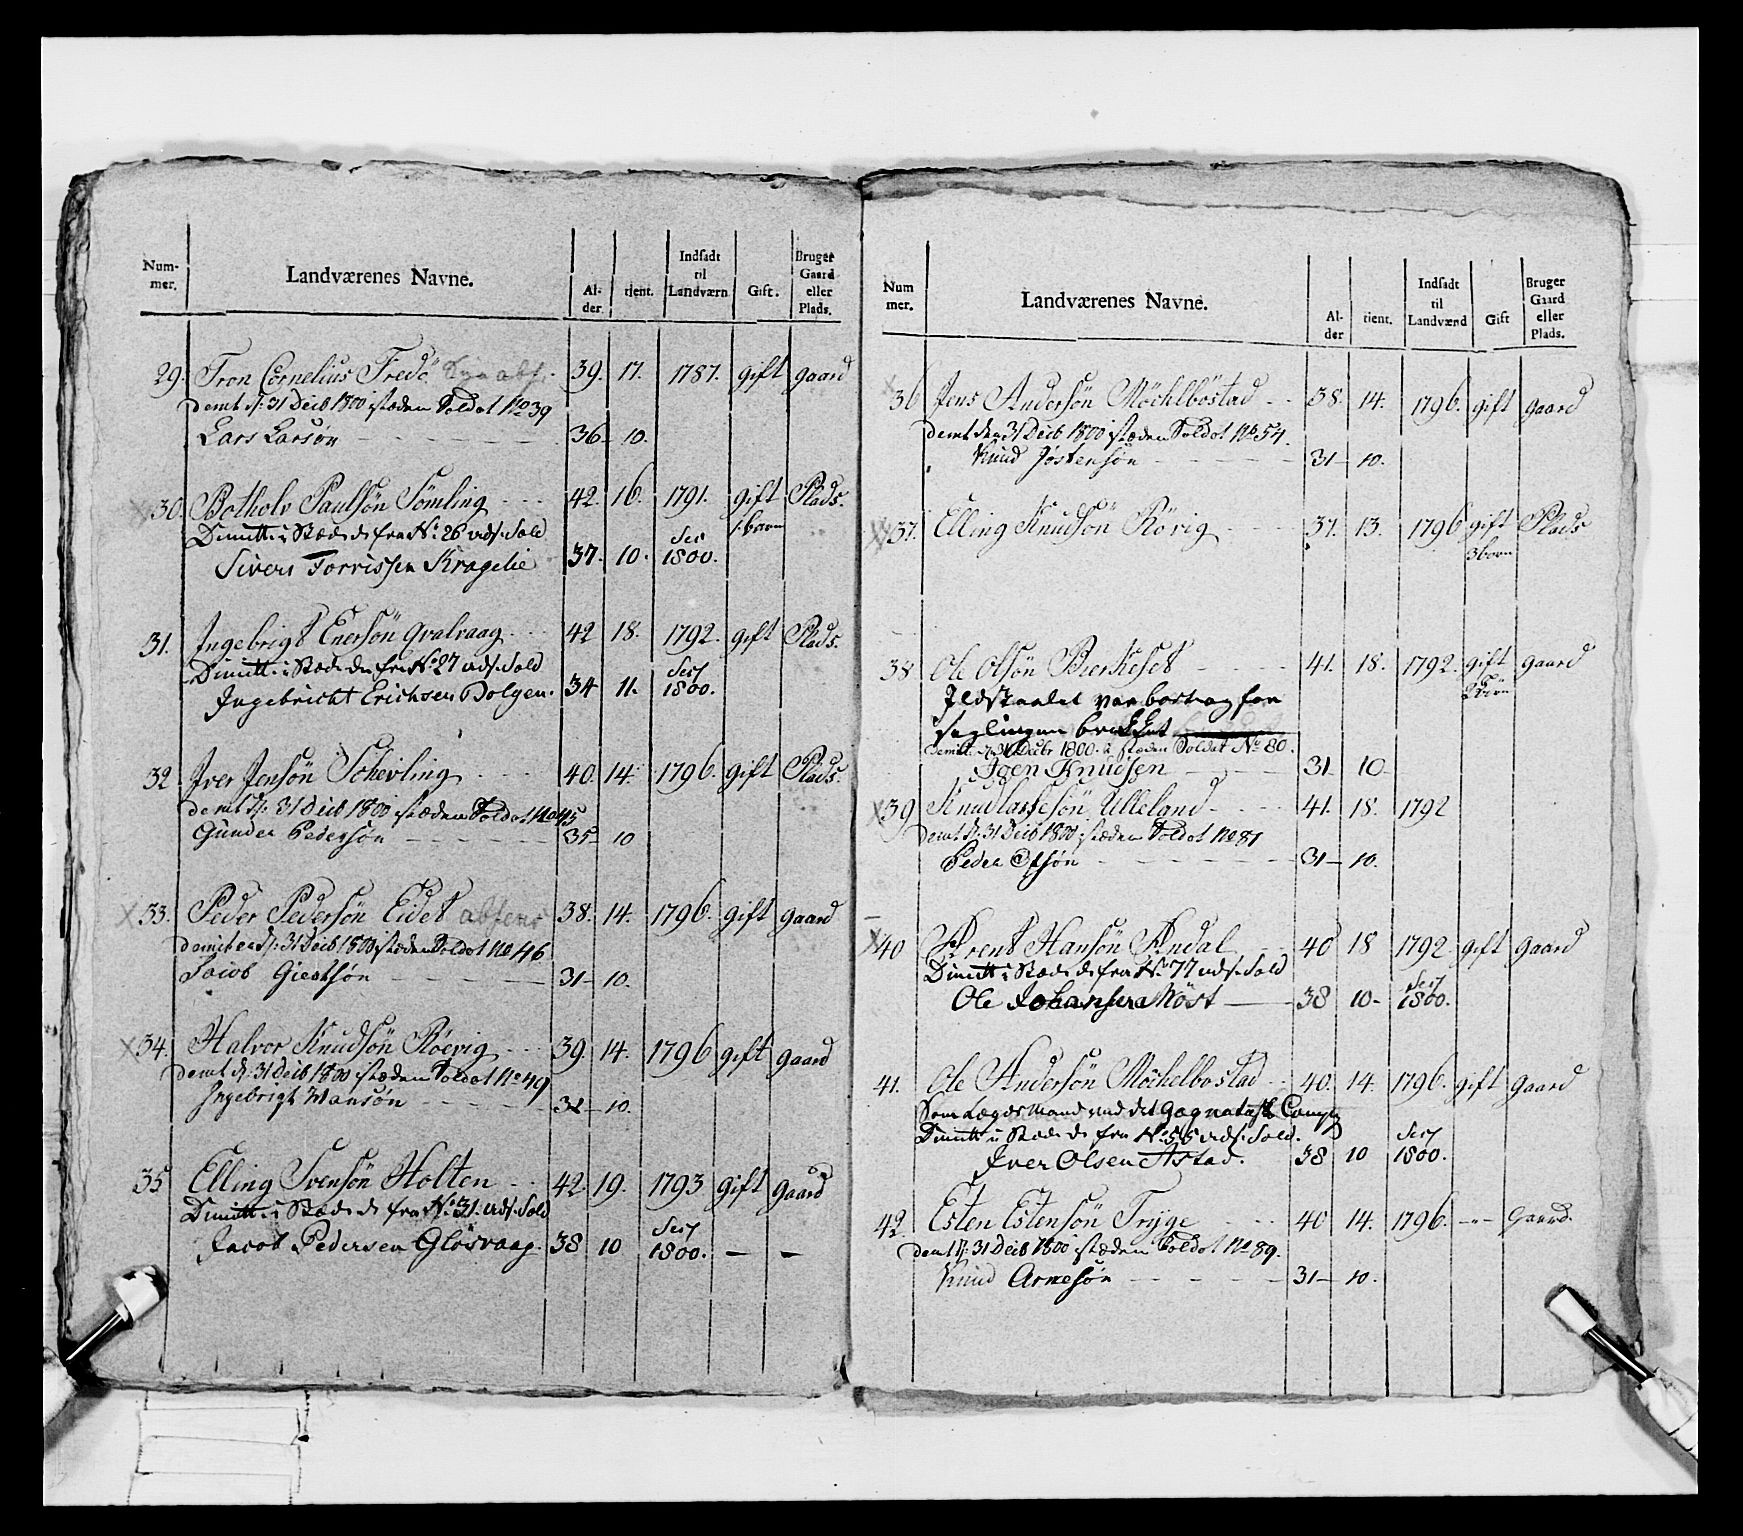 Num-
mer. Landværenes Navne. Al-
der. tient. Indsadt
til
Landværn Gift. Bruger
Gaard
eller
Plads.
29. Tron Cornelius Fredö 39. 17. 1787. gift gaard
demt d: 31 Decb 1800 istæden Soldat No 39
Lars Larsøn 36 10.
30. Botholv Paulsön Sömling 42. 16. 1791. gift Plads.
Dimitt: i Stæde de fra No: 26 uds: Sold 1 barn
Sivers Torrissen Kragelie 37. 10. 1800.
31. Ingebrigt Enersön Qvalvaag 42 18. 1792. gift Plads.
Dimitt: i Stæde de fra No: 27 uds: Sold
Ingebricht Erichsen Dolgen. 34 11. 1800.
32. Iver Jensön Schevling 40. 14. 1796. gift Plads.
demt d: 31 Decb 1800 istæden Soldat No 45
Gunder Pedersøn 35 10
33. Peder Pedersön Eidet absent 38. 14. 1796. gift gaard
d: 31 Decb 1800 istæden Soldat No 46
Jacob 31 10.
34. Halvor Knudsön Röevig 39. 14. 1796 gift gaard
demt d: 31 Decb 1800 istæden Soldat No 49
Ingebrigt Hansøn 32 10.
35 Elling Svensön Holten 42. 19. 1793 gift gaard
Dimitt: i Stæde de fra No: 31. uds: Sold
Jacob Pedersen Glösvaag. 38 10 1800. — —
Num
mer. Landværenes Navne. Al-
der tient. Indsadt
til
Landværd Gift Bruger
Gaard
eller
Plads.
36 Jens Andersön Möchlböstad 38. 14. 1796. gift gaard
demt den 31 Decb 1800 istæden Soldat No 54.
Knud Jostensøn 31 10.
37. Elling Knudsön Rövig 37. 13. 1796 gift Plads
3 born
38 Ole Olsön Bierkeset 41. 18. 1792. gift gaard
Ildstaalet var bort og for
seglingen brekket
demitt: d 31 Decbr 1800. i stæden Soldat No 80.
Joen Knudsen 31 10
39 Knud Lassesön Ulleland 41. 18. 1792
demt d: 31 Decb 1800 istæden Soldat No 81
Peder Olsøn 31 10.
40 Arent Hansön Andal 40 18 1792. gift gaard
Dimitt: i Stæde de fra No 77 uds: Sold
Ole Johansen Möst 38 10 1800.
41. Ole Andersön Möchelbostad 40. 14. 1796. gift gaard
Som Lægds Mand ved det Compg
Dimitt: i Stæde de fra No: 55 uds: Sold.
Iver Olsen Astad. 38 10 1800.
42. Esten Estensön Tryge 40 14. 1796. -"- Gaard.
demt d: 31 Decb 1800 istæden Soldat No 89.
Knud Arnesøn 31 10.